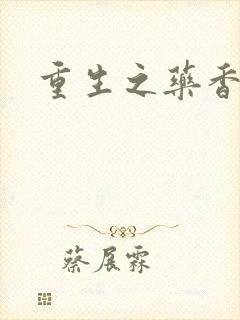 重生之药香
蔡展霖